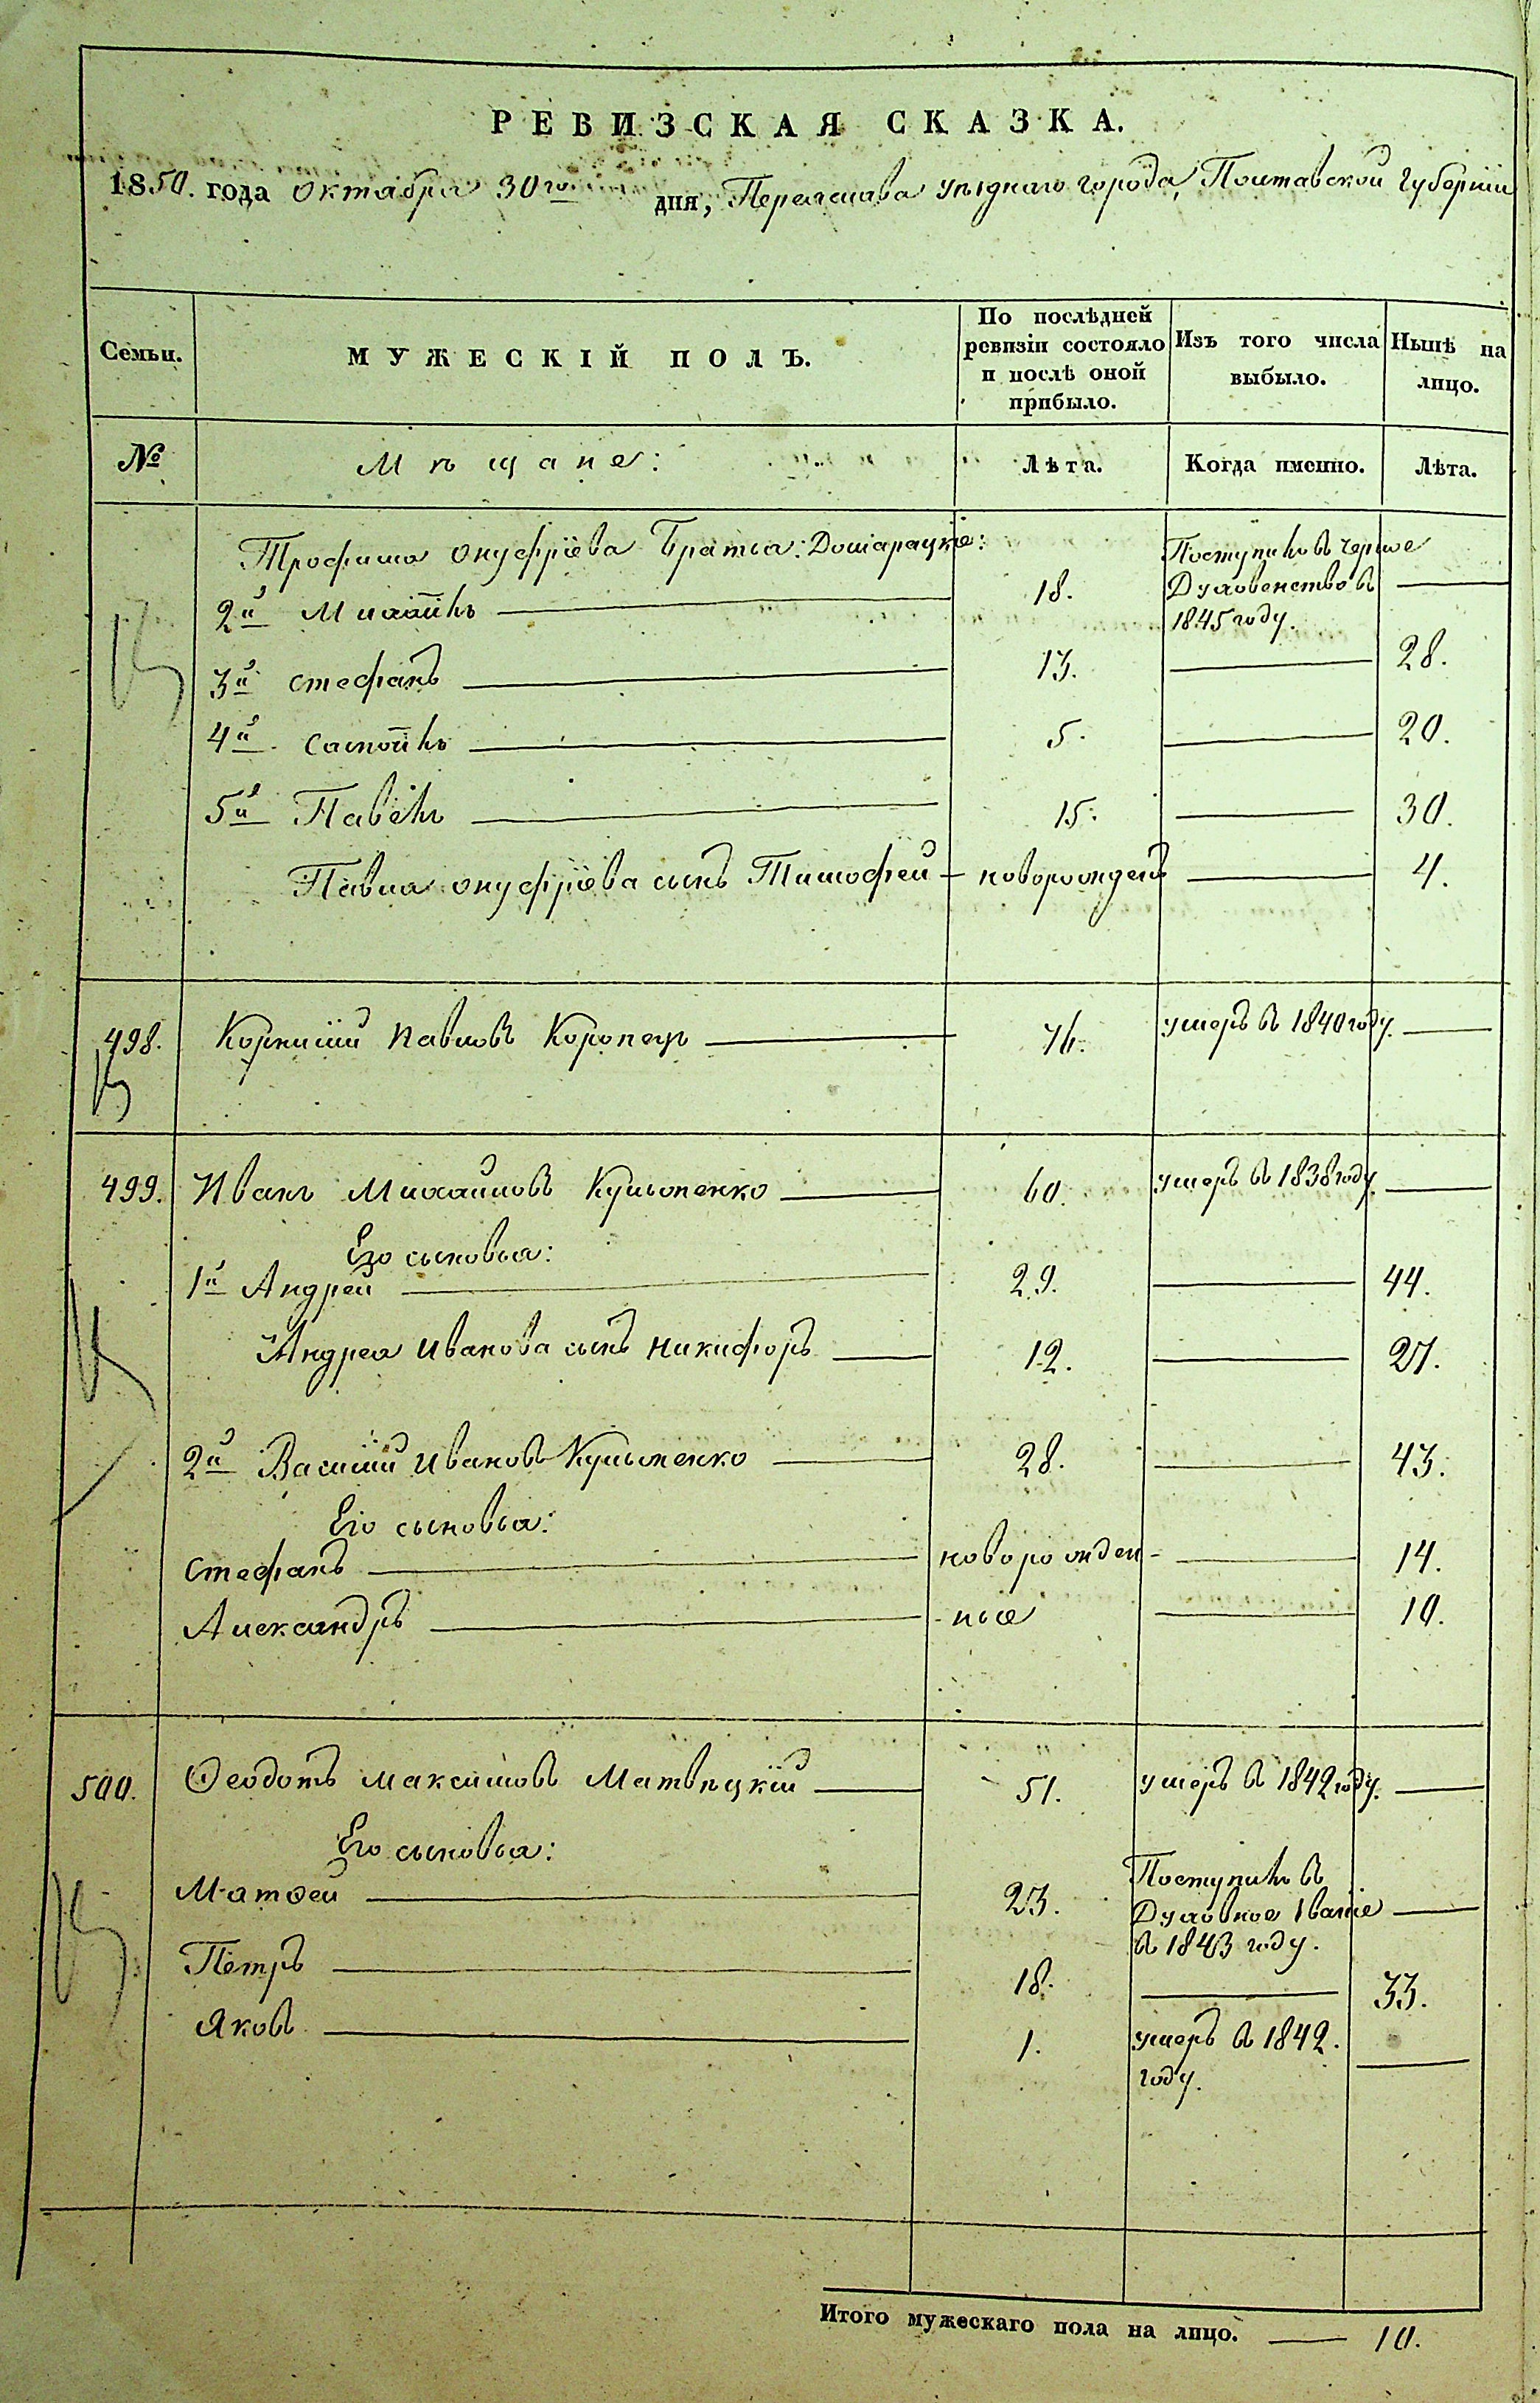 РЕВИЗСКАЯ СКАЗКА.
1850. года октября 30го дня, Переяслава уѣзднаго города, Полтавской Губерніи
Семьи. МУЖЕСКІЙ ПОЛЪ. По послѣдней ревизіи состояло и послѣ оной прибыло. Изъ того числа выбыло. Нынѣ на лицо.
№ Мѣщане: Лѣта. Когда именно. Лѣта.
Трофима Онуфріева Братья: Поступилъ въ Черное
2й Михаилъ 18. Духовенство въ
1845 году.
3й Стефанъ 13. 28.
4й Самоилъ 5. 20.
5й Павелъ 15. 30.
Павла Онуфріева сынъ Тимофей новорожденъ 4.
498. Корнилий Павловъ Коропецъ 76. умеръ въ 1840 году.
499. Иванъ Михайловъ 60. умеръ въ 1838 году.
Его сыновья:
1й Андрей 29. 44.
Андрея Иванова сынъ Никифоръ 12. 27.
2й Василий Ивановъ 28. 43.
Его сыновья:
Стефанъ новорожден- 14.
Александръ -ные 10.
500. Ѳеодотъ Максимовъ Матвѣцкій 51. умеръ въ 1842 году.
Его сыновья:
Матѳей 23. Поступилъ въ
Духовное Званіе
въ 1843 году.
Петръ 18. 33.
Яковъ 1. умеръ въ 1842.
году.
Итого мужескаго пола на лицо. 10.